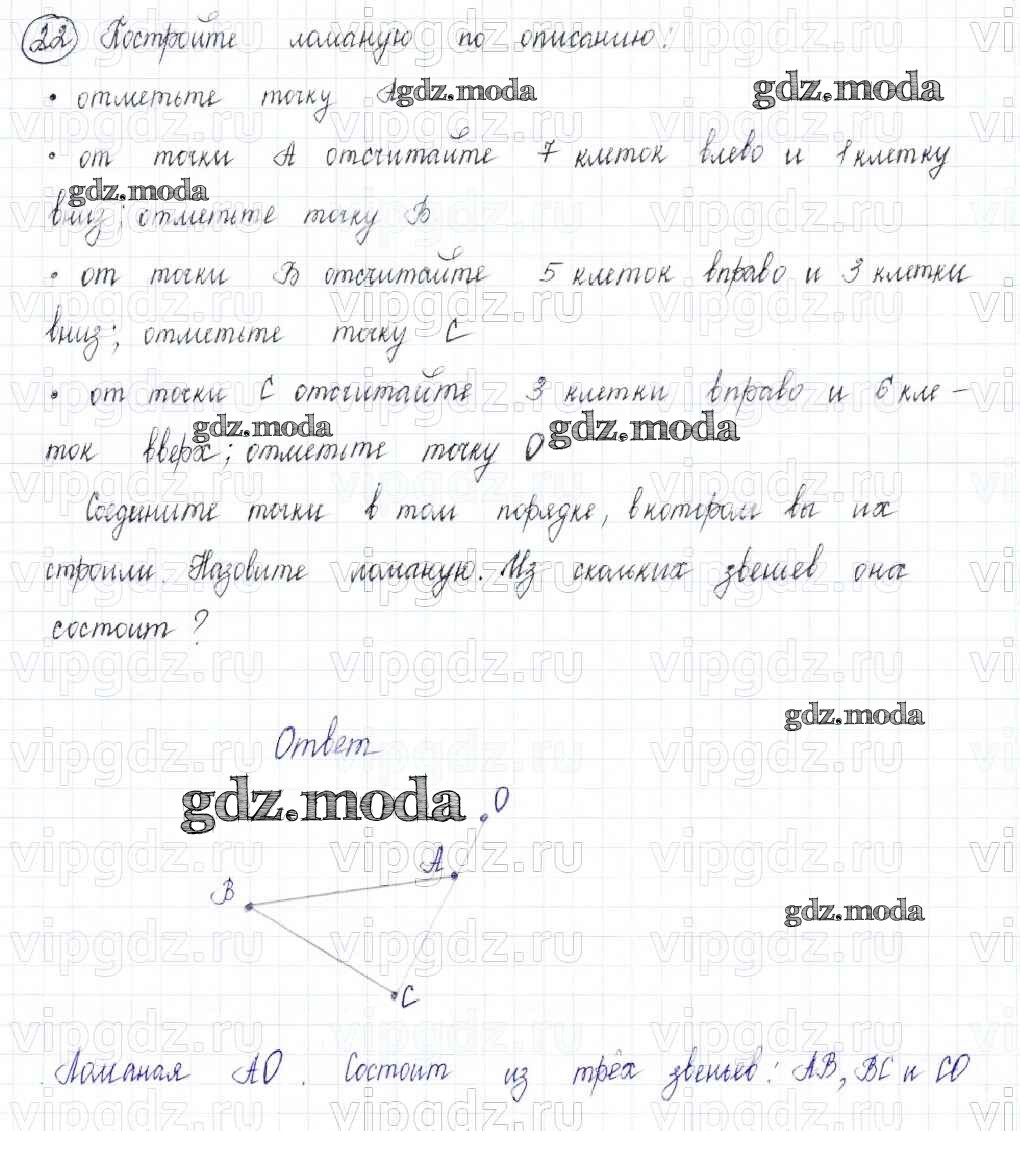 22 Постройте ломаную по описанию:
• отметьте точку A
• от точки A отсчитайте 7 клеток влево и 1 клетку
вниз; отметьте точку B
• от точки B отсчитайте 5 клеток вправо и 3 клетки
вниз; отметьте точку C
• от точки C отсчитайте 3 клетки вправо и 6 кле-
ток вверх; отметьте точку O
Соедините точки в том порядке, в котором вы их
строили. Назовите ломаную. Из скольких звеньев она
состоит?
Ответ
O
A
B
C
Ломаная AO. Состоит из трёх звеньев: AB, BC и CO
gdz.moda
vipgdz.ru